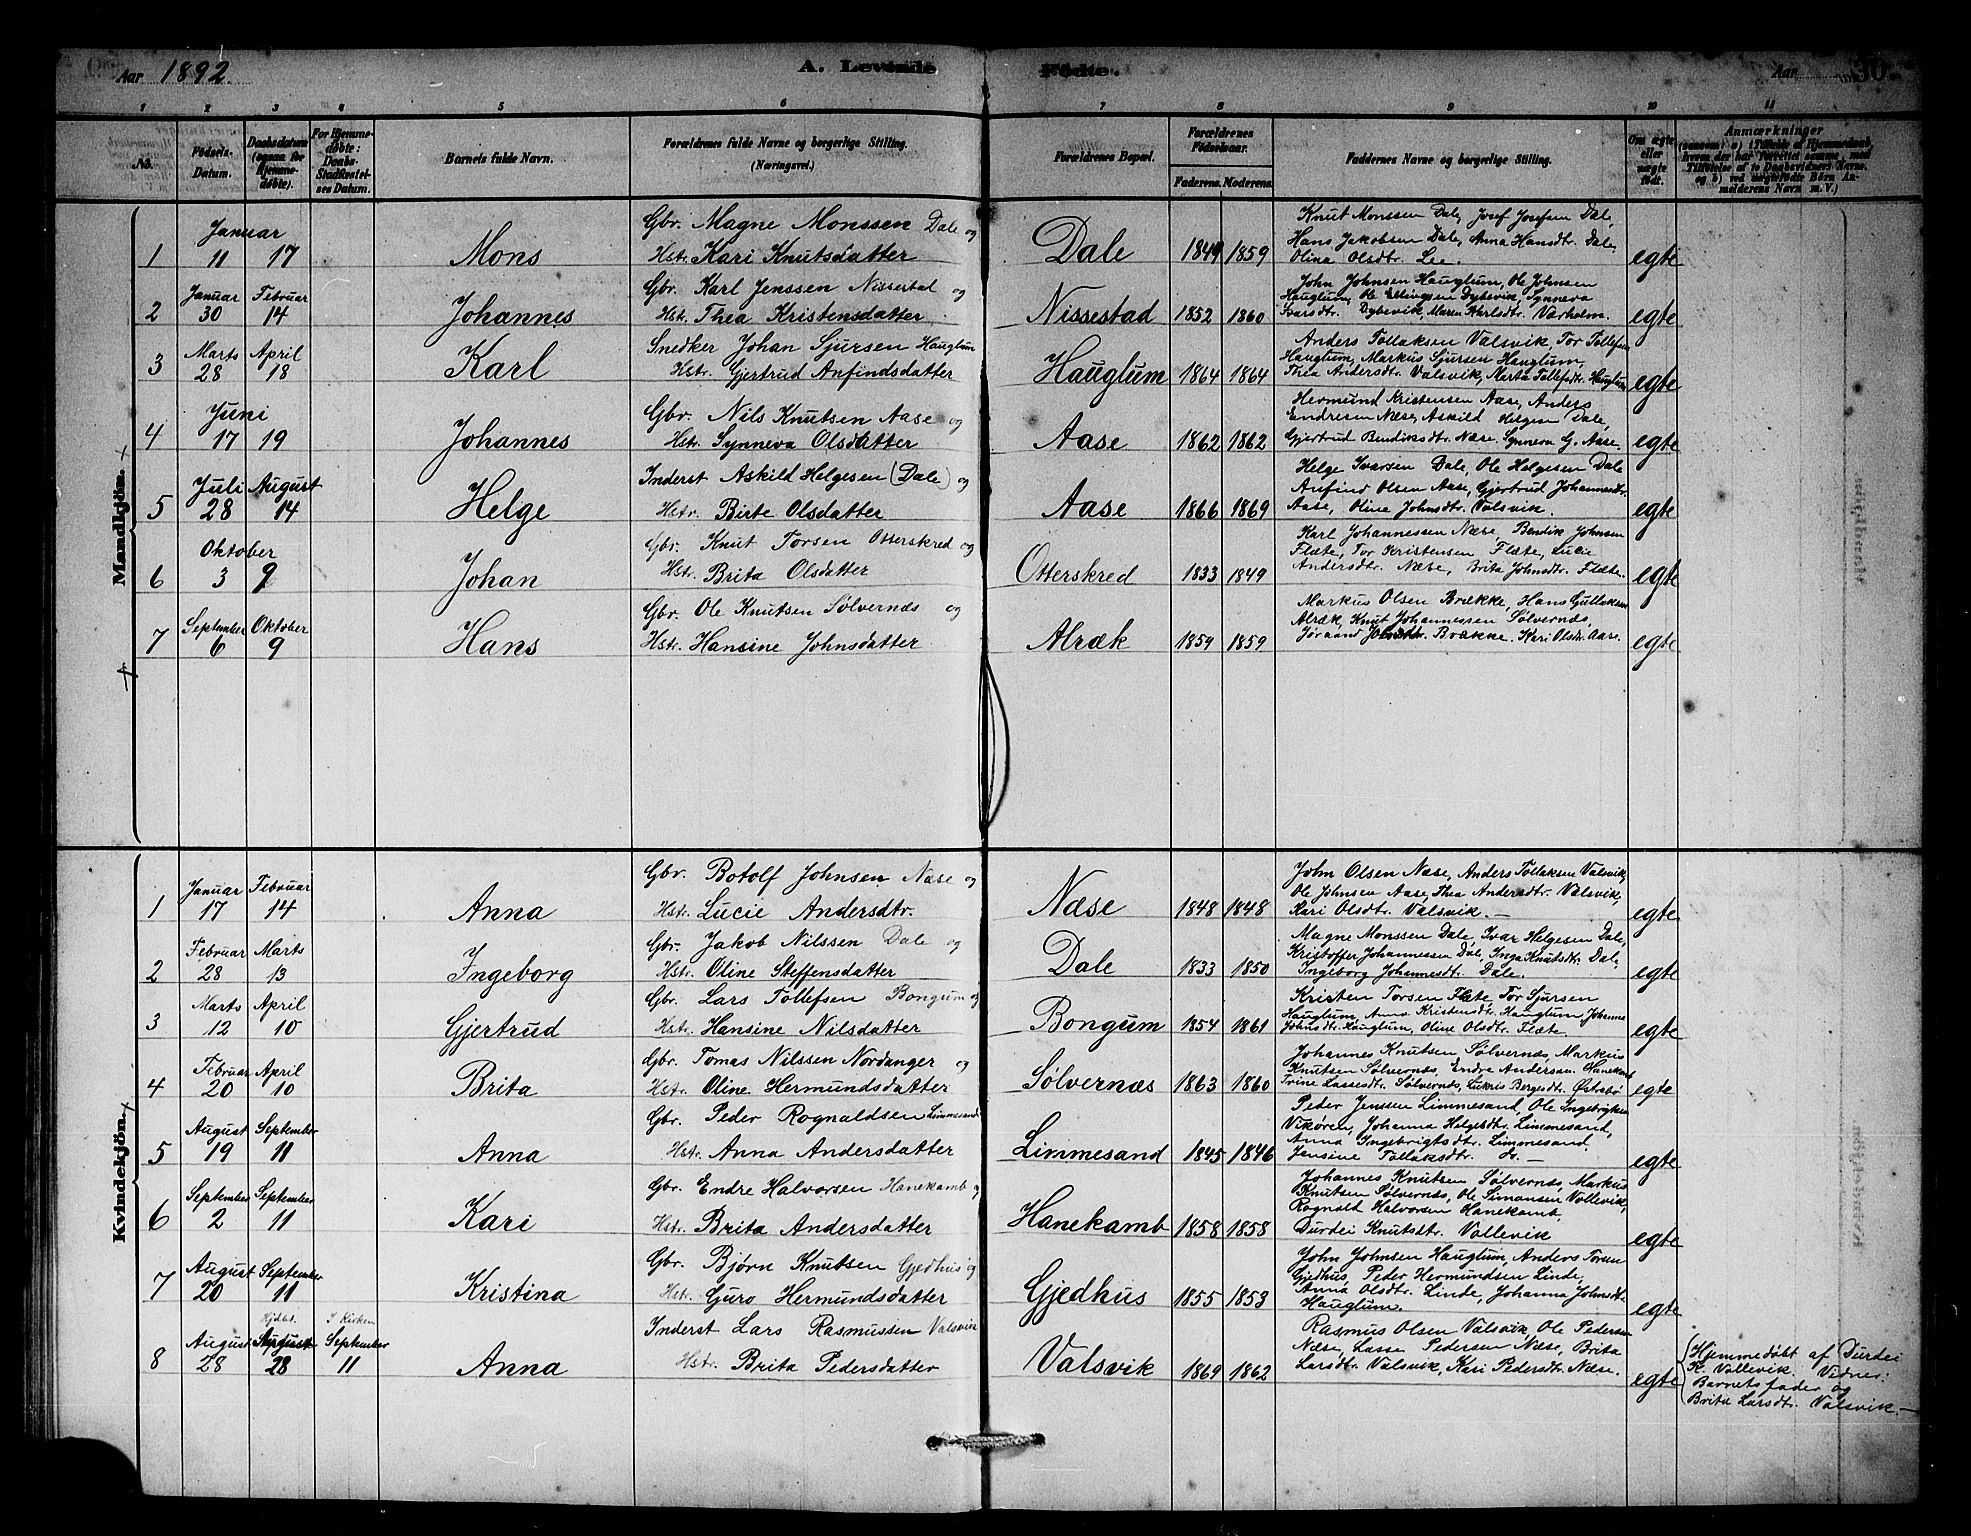 Aar 1892. A. Levende Fødte. Aar 30
1 2 3 4 5 6 7 8 9 10 11
No. Fødsels-Datum. Daabsdatum (ogsaa for Hjemmedøbte). For Hjemmedøbte: Daabs-Stadfæstelses Datum. Barnets fulde Navn. Forældrenes fulde Navne og borgerlige Stilling. (Næringsvei.) Forældrenes Bopæl. Forældrenes Fødselsaar. Faderens. Moderens. Faddernes Navne og borgerlige Stilling. Om ægte eller uægte født. Anmærkninger
Mandkjön.
Januar Gbr. Magne Monssen Dale og Knut Monssen Dale, Josef Josefsen Dale,
1 11 17 Mons Hstr. Kari Knutsdatter Dale 1849 1859 Hans Jakobsen Dale, Anna Hansdtr. Dale,
Olina Olsdtr. Lee. egte
Januar Februar Gbr. Karl Jenssen Nissestad og John Johnsen Hauglum, Ole Johnsen
2 30 14 Johannes Hst. Thea Kristensdatter Nissestad 1852 1860 Hauglum, Ole Ellingsen Dybevik, Synneva
Ivarsdtr. Dybevik, Maren Karlsdtr. Værholm. egte
Marts April Snedker Johan Sjursen Hauglum Anders Tollaksen Valsvik, Tor Tollefsen
3 28 18 Karl Hstr. Gjertrud Anfindsdatter Hauglum 1864 1864 Hauglum, Markus Sjursen Hauglum,
Thea Andersdtr. Valsvik, Marta Tollefsdtr. Hauglum egte
Juni Gbr. Nils Knutsen Aase og Hermund Kristensen Aase, Anders
4 17 19 Johannes Hstr. Synneva Olsdatter Aase 1862 1862 Endresen Næse, Askild Helgesen Dale,
Gjertrud Bendiksdtr. Næse, Synneva G. Aase. egte
Juli August Inderst Askild Helgesen (Dale) og Helge Ivarsen Dale, Ole Helgesen Dale
5 28 14 Helge Hstr. Birte Olsdatter Aase 1866 1869 Anfind Olsen Aase, Gjertrud Johannesdtr.
Aase, Oline Johnsdtr. Valsvik. egte
Oktober Gbr. Knut Torsen Otterskred og Karl Johannessen Næse, Bendik Johnsen
6 3 9 Johan Hstr. Brita Olsdatter Otterskred 1833 1849 Flæte, Tor Kristensen Flæte, Lucie
Andersdtr. Næse, Brita Johnsdtr. Flæte. egte
September Oktober Gbr. Ole Knutsen Sølvernæs og Markus Olsen Brække, Hans Gullaksen
7 6 9 Hans Hstr. Hansine Johnsdatter Alræk 1859 1859 Alræk, Knut Johannessen Sølvernæs,
Jøraand Johnsdtr. Brække, Kari Olsdtr. Aase. egte
Kvindekjön.
Januar Februar Gbr. Botolf Johnsen Næse og John Olsen Næse, Anders Tollaksen Valsvik,
1 17 14 Anna Hstr. Lucie Andersdtr. Næse 1848 1848 Ole Johnsen Aase, Thea Andersdtr. Valsvik,
Kari Olsdtr. Valsvik. — egte
Februar Marts Gbr. Jakob Nilssen Dale og Magne Monssen Dale, Ivar Helgesen Dale,
2 28 13 Ingeborg Hstr. Oline Steffensdatter Dale 1833 1850 Kristoffer Johannessen Dale, Inga Knutsdtr. Dale,
Ingeborg Johannesdtr. Dale. egte
Marts April Gbr. Lars Tollefsen Bongum og Kristen Torsen Flæte, Tor Sjursen
3 12 10 Gjertrud Hstr. Hansine Nilsdatter Bongum 1854 1861 Hauglum, Anna Kristensdtr. Hauglum, Johanna
Johnsdtr. Hauglum, Oline Olsdtr. Flæte. egte
Februar April Gbr. Tomas Nilssen Nordanger og Johannes Knutsen Sølvernæs, Markus
4 20 10 Brita Hstr. Oline Hermundsdatter Sølvernæs 1863 1860 Knutsen Sølvernæs, Endre Andersen Hanekamb
Trine Lassesdtr. Sølvernæs, Lukris Bergesdtr. Østrebø egte
August September Gbr. Peder Rognaldsen Limmesand Peder Jenssen Limmesand, Ole Ingebrigtsen
5 19 11 Anna Hstr. Anna Andersdatter Limmesand 1845 1846 Vikøren, Johanna Helgesdtr. Limmesand,
Anna Ingebrigtsdtr. Limmesand,
Jensine Tollaksdtr. do. — egte
September September Gbr. Endre Halvorsen Hanekamb og Johannes Knutsen Sølvernæs, Markus
6 2 11 Kari Hstr. Brita Andersdatter Hanekamb 1858 1858 Knutsen Sølvernæs, Ole Simonsen Vallevik,
Rognald Halvorsen Hanekamb,
Durdei Knutsdtr. Vallevik egte
August September Gbr. Bjørn Knutsen Gjedhus og John Johnsen Hauglum, Anders Torsen
7 20 11 Kristina Hstr. Guro Hermundsdatter Gjedhus 1855 1853 Gjedhus, Peder Hermundsen Linde,
Anna Olsdtr. Linde, Johanna Johnsdtr.
Hauglum. egte
Hjdbt. I Kirken Inderst Lars Rasmussen Valsvik Rasmus Olsen Valsvik, Ole Pedersen
August August September Næse, Lasse Pedersen Næse, Brita
8 28 28 11 Anna Hstr. Brita Pedersdatter Valsvik 1869 1862 Larsdtr. Valsvik, Kari Pedersdtr. Næse. egte
Hjemmedöbt af Durdei
K. Vallevik. Vidner:
Barnets fader og
Brita Larsdtr. Valsvik. —